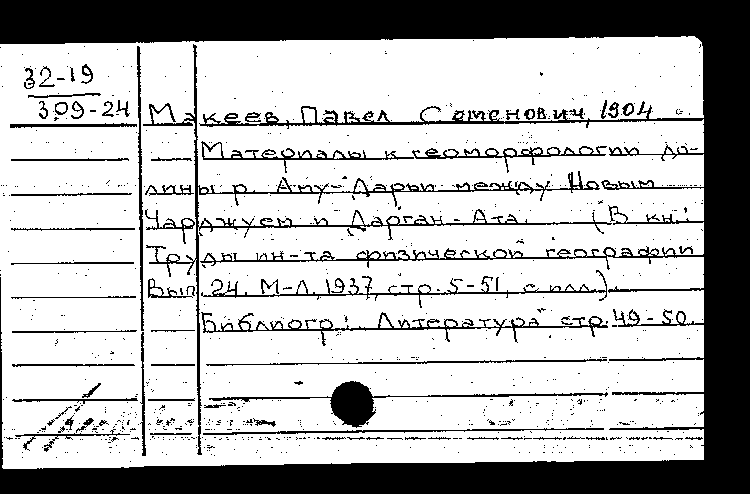 32-19
309-24
Макеев, Павел Семенович, 1904
Материалы к геоморфологии до-
лины р. Аму-Дарьи между Новым
Чарджуем и Дарган-Ата. (В кн.:
Труды ин-та физической географии
Вып. 24. М-Л, 1937, стр. 5-51, с илл.)
Библиогр.: "Литература" стр. 49-50.